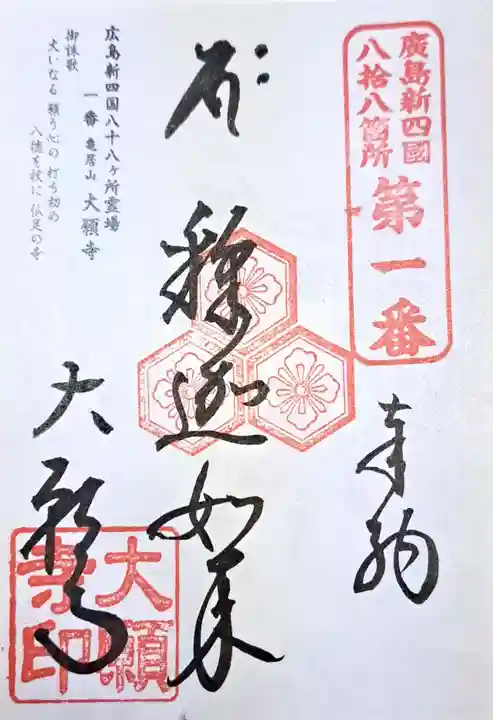 廣島新四國
八拾八箇所
第一番
奉拝
釋迦如来
大願寺
大願
寺印
広島新四国八十八ヶ所霊場
一番 亀居山 大願寺
御詠歌
大いなる 願り心の 打ち初め
八幡を杖に 仏足の寺